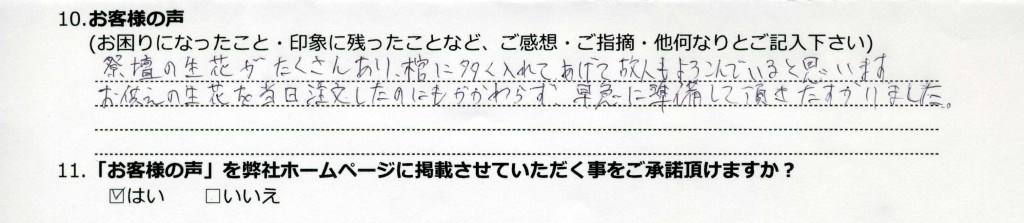 10.お客様の声
(お困りになったこと・印象に残ったことなど、ご感想・ご指摘・他何なりとご記入下さい)
祭壇の生花がたくさんあり、棺に多く入れてあげて故人もよろこんでいると思います
お供えの生花を当日注文したのにもかかわらず、早急に準備して頂きたすかりました。
11.「お客様の声」を弊社ホームページに掲載させていただく事をご承諾頂けますか？
☑はい □いいえ